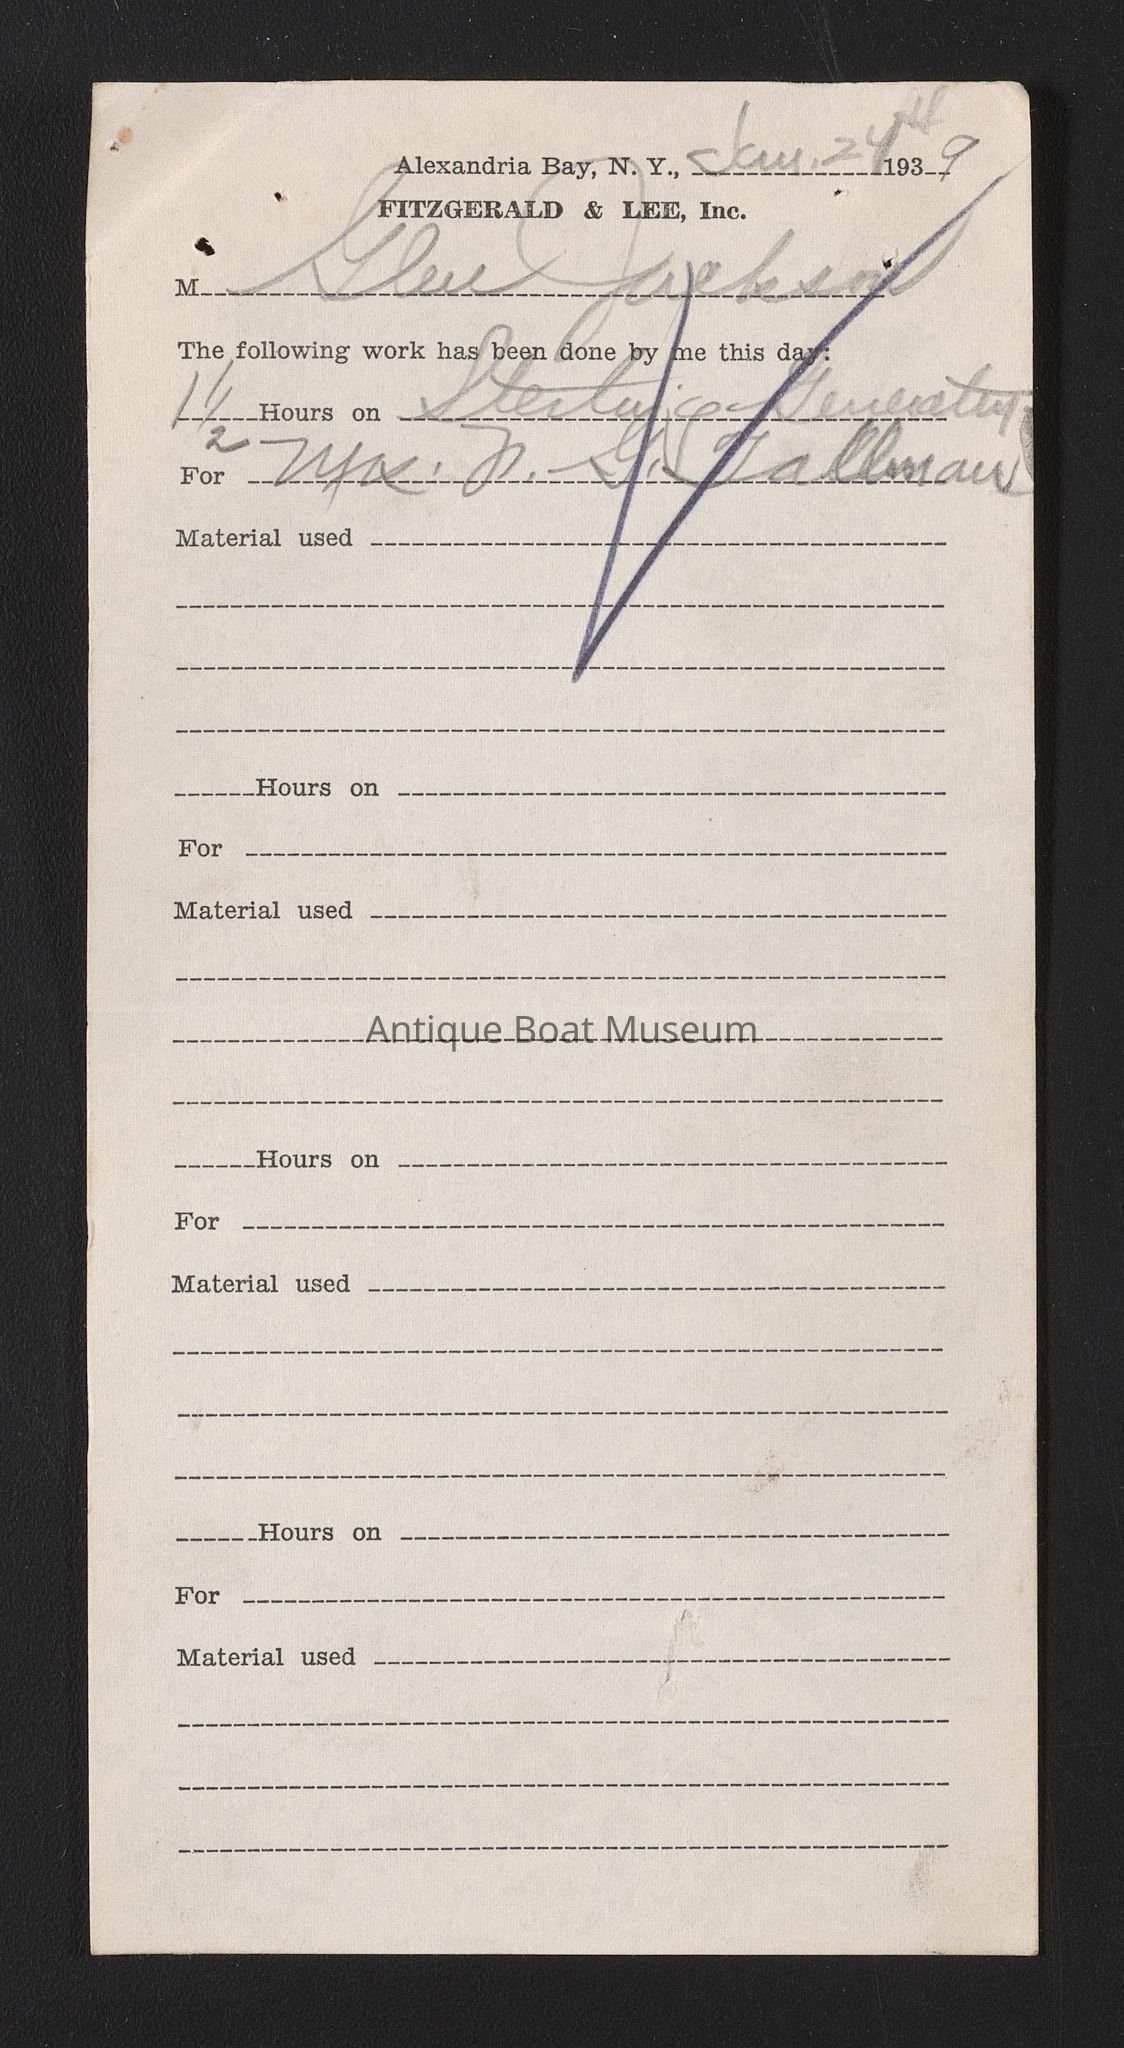 Alexandria Bay, N. Y., Jan. 24th 1939
FITZGERALD & LEE, Inc.
M Glen Jackson
The following work has been done by me this day:
1 1/2 Hours on Generator
For Mr. F. G. Tallman
Material used
Hours on
For
Material used
Antique Boat Museum
Hours on
For
Material used
Hours on
For
Material used